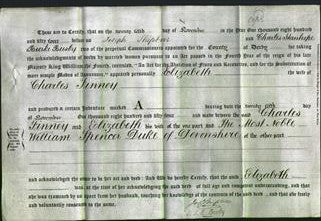 These are to Certify, that on the twenty sixth day of November in the Year One thousand eight hundred
and fifty four before us Joseph Shipton and Charles Stanhope
Burke Busby two of the perpetual Commissioners appointed for the County of Derby for
taking the acknowledgments of deeds by married women pursuant to an Act passed in the Fourth Year of the reign of his
late Majesty King William the Fourth, intituled, "An Act for the Abolition of Fines and Recoveries, and for the Substitution of
more simple Modes of Assurance," appeared personally Elizabeth the wife of
Charles Finney
and produced a certain Indenture marked A bearing date the day
of November One thousand eight hundred and fifty four and made between the said Charles
Finney and Elizabeth his wife of the one part and The Most Noble
William Spencer Duke of Devonshire of the other part
and acknowledged the same to be her act and deed: And We do hereby Certify, that the said Elizabeth
was, at the time of her acknowledging the said deed of full age and competent understanding, and that
she was examined by us apart from her husband, touching her knowledge of the contents of the said deed, and that she freely
and voluntarily consented to the same.